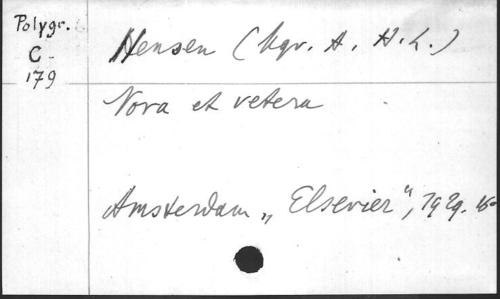 Polygr.
C
179
Hensen (Mgr. A. H. L.)
Nova et vetera
Amsterdam „Elsevier", 1929.